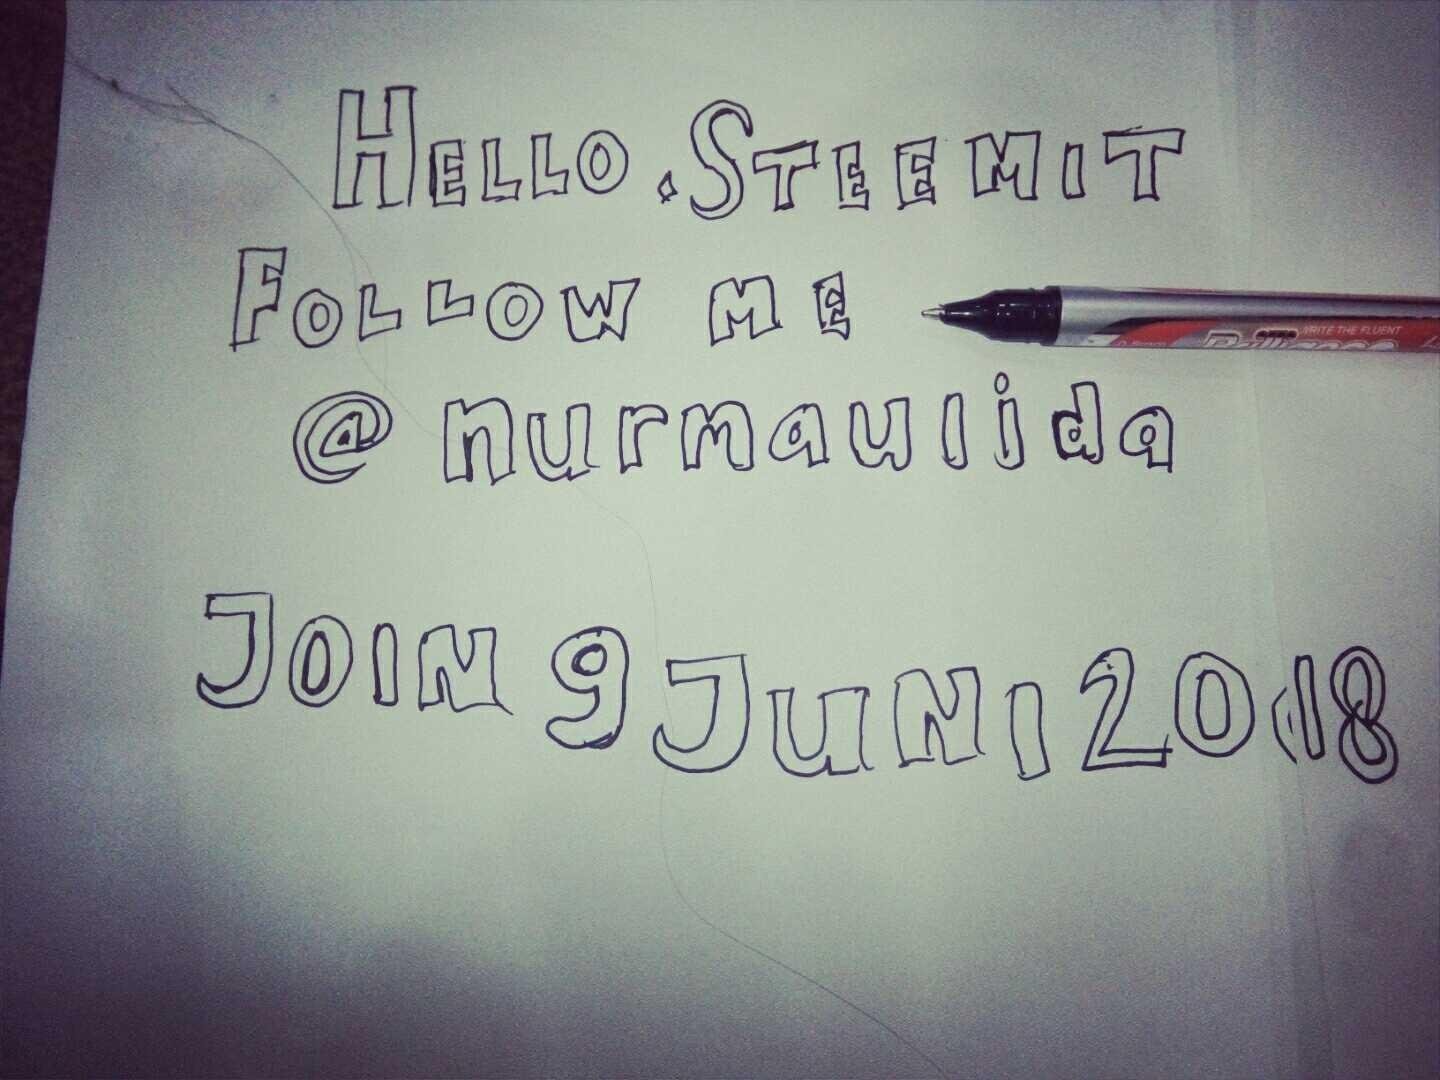 HELLO.STEEMIT
FOLLOW ME
@nurmaulida
JOIN 9 JUNI 2018
WRITE THE FLUENT